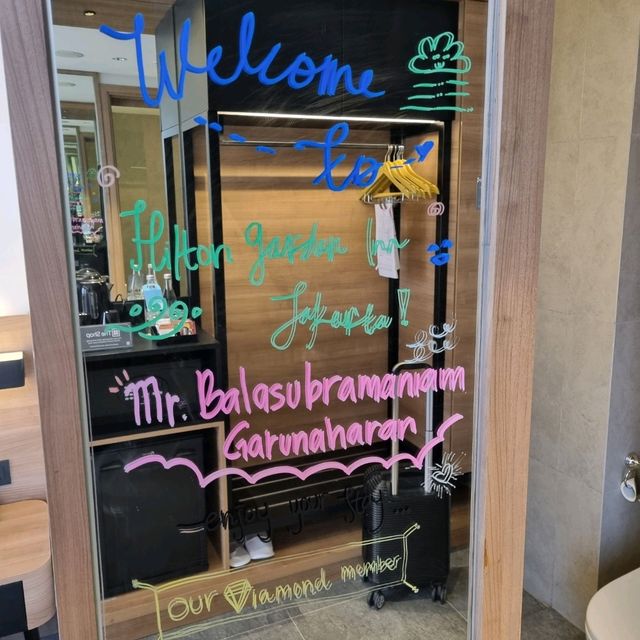 Welcome
to
Hilton Garden Inn
Jakarta!
Mr. Balasubramaniam
Garunaharan
enjoy your stay...
Our Diamond member
The Shop